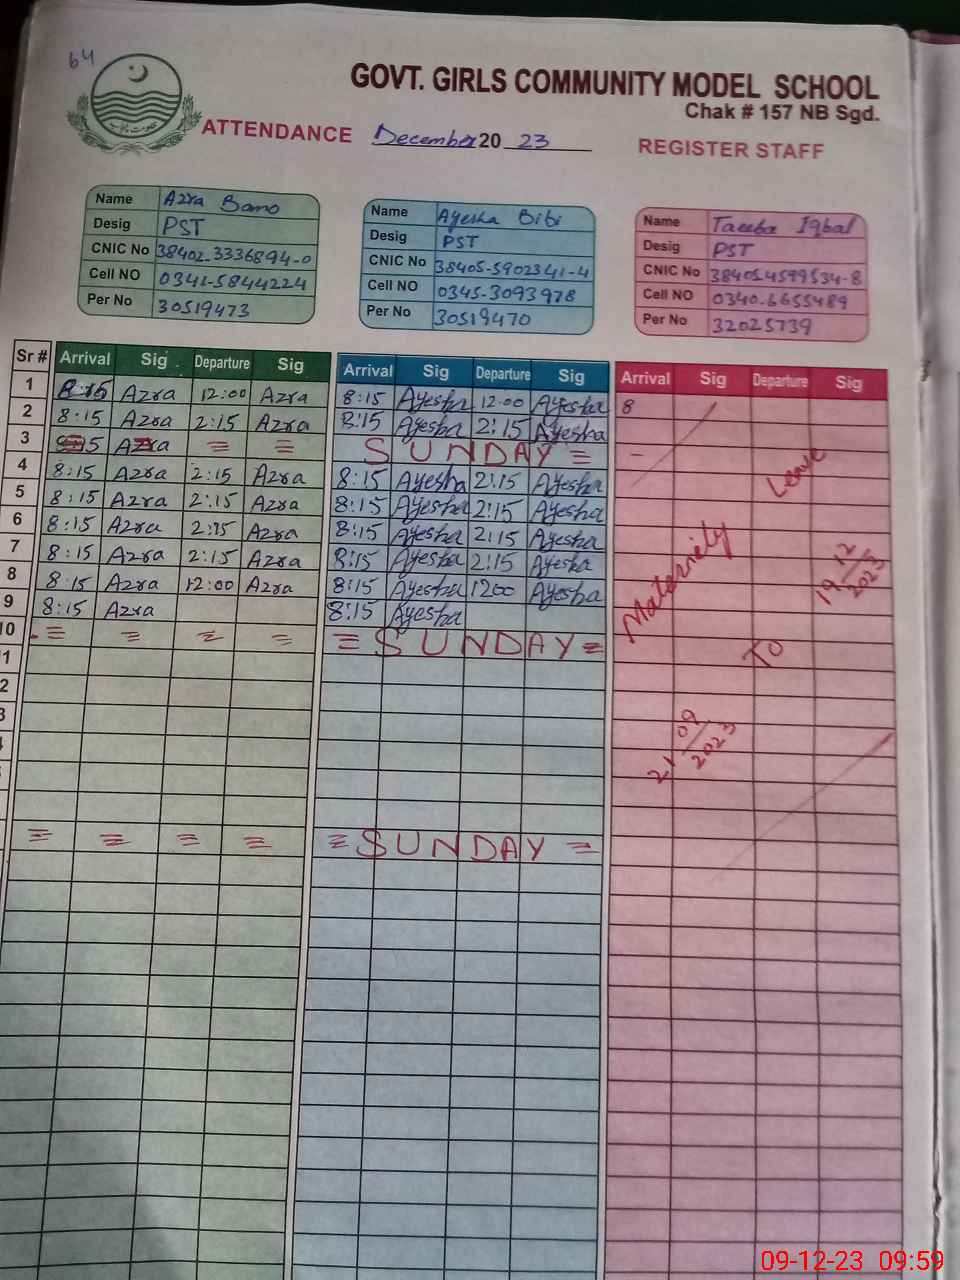 64
GOVT. GIRLS COMMUNITY MODEL SCHOOL
Chak # 157 NB Sgd.
ATTENDANCE December 20 23 REGISTER STAFF
Name Azra Bano
Desig PST
CNIC No 38402-3336894-0
Cell NO 0341-5844224
Per No 30519473
Name Ayesha Bibi
Desig PST
CNIC No 38405-5902341-4
Cell NO 0345-3093978
Per No 30519470
Name Taeeba Iqbal
Desig PST
CNIC No 38405-4599534-8
Cell NO 0340-6655489
Per No 32025739
Sr # Arrival Sig Departure Sig Arrival Sig Departure Sig Arrival Sig Departure Sig
1 8:15 Azra 12:00 Azra 8:15 Ayesha 12:00 Ayesha 8
2 8:15 Azra 2:15 Azra 8:15 Ayesha 2:15 Ayesha
3 Azra = = SUNDAY =
4 8:15 Azra 2:15 Azra 8:15 Ayesha 2:15 Ayesha
5 8:15 Azra 2:15 Azra 8:15 Ayesha 2:15 Ayesha
6 8:15 Azra 2:15 Azra 8:15 Ayesha 2:15 Ayesha
7 8:15 Azra 2:15 Azra 8:15 Ayesha 2:15 Ayesha
8 8:15 Azra 12:00 Azra 8:15 Ayesha 1200 Ayesha
9 8:15 Azra 8:15 Ayesha
10 = = = = = SUNDAY =
1
2
3
4
= = = = = SUNDAY =
Maternity Leave
21 09/2023
TO
19 12/2023
09-12-23 09:59